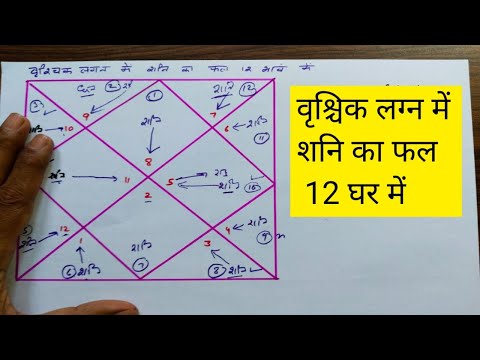 वृश्चिक लगन में शनि का फल 12 भावो में
शनि
②
शनि
①
शनि
⑫
9
7
10
शनि
6
शनि
⑪
8
शनि
11
5
शनि
2
⑩
12
शनि
4
शनि
⑨
1
3
⑥
शनि
⑦
⑧
शनि
वृश्चिक लग्न में
शनि का फल
12 घर में